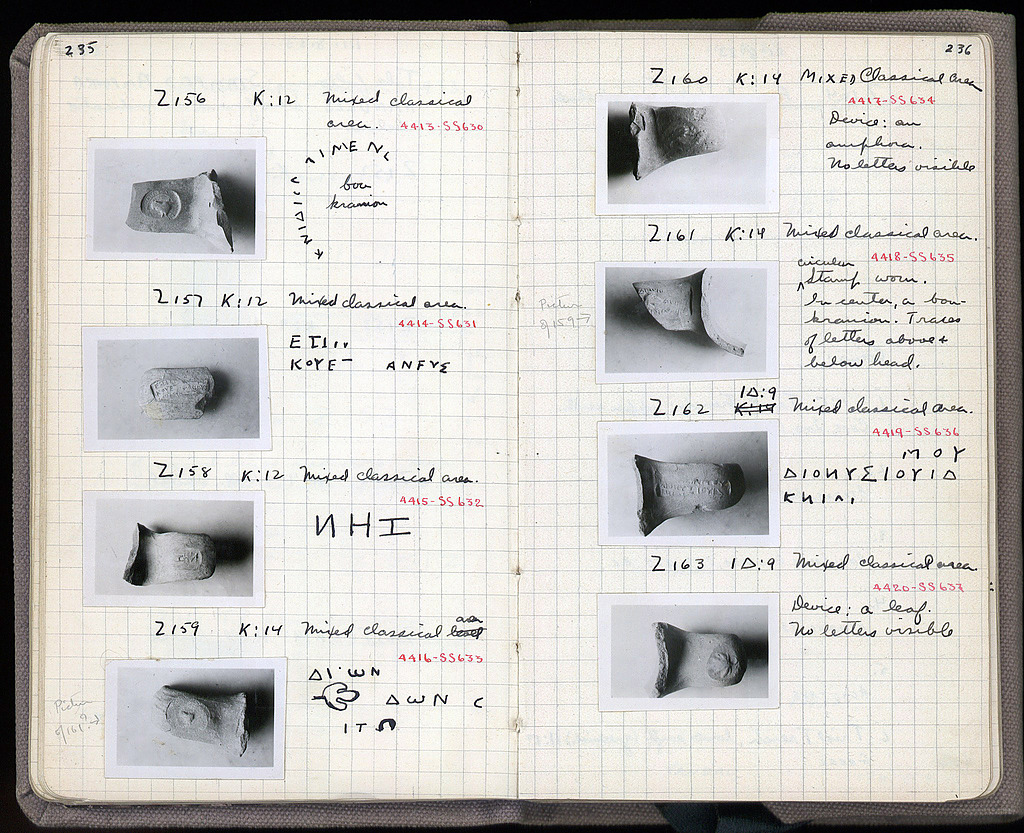 235
Z156 K:12 Mixed classical
area. 4413-SS630
ΛΙΜΕΝ
bou
kranion
ΚΝΙΔΙ
Z157 K:12 Mixed classical area.
4414-SS631
ΕΤΙ
ΚΟΥΕ- ΑΝΕΥΣ
Z158 K:12 Mixed classical area.
4415-SS632
ИНΙ
Z159 K:14 Mixed classical area
4416-SS633
ΔΙ ωΝ
ΔωΝ C
ΙΤ
Picture
of 161?
236
Z160 K:14 Mixed Classical area
4417-SS634
Device: an
amphora.
No letters visible
Z161 K:14 Mixed classical area.
circular 4418-SS635
Stamp worn.
In center, a bou-
kranion. Traces
of letters above +
below head.
Picture
of 159→
ΙΔ:9
Z162 K:14 Mixed classical area.
4419-SS636
ΠΟΥ
ΔΙΟΝΥΣΙΟΥΙΔ
ΚΝΙΛΙ
Z163 ΙΔ:9 Mixed classical area.
4420-SS637
Device: a leaf.
No letters visible